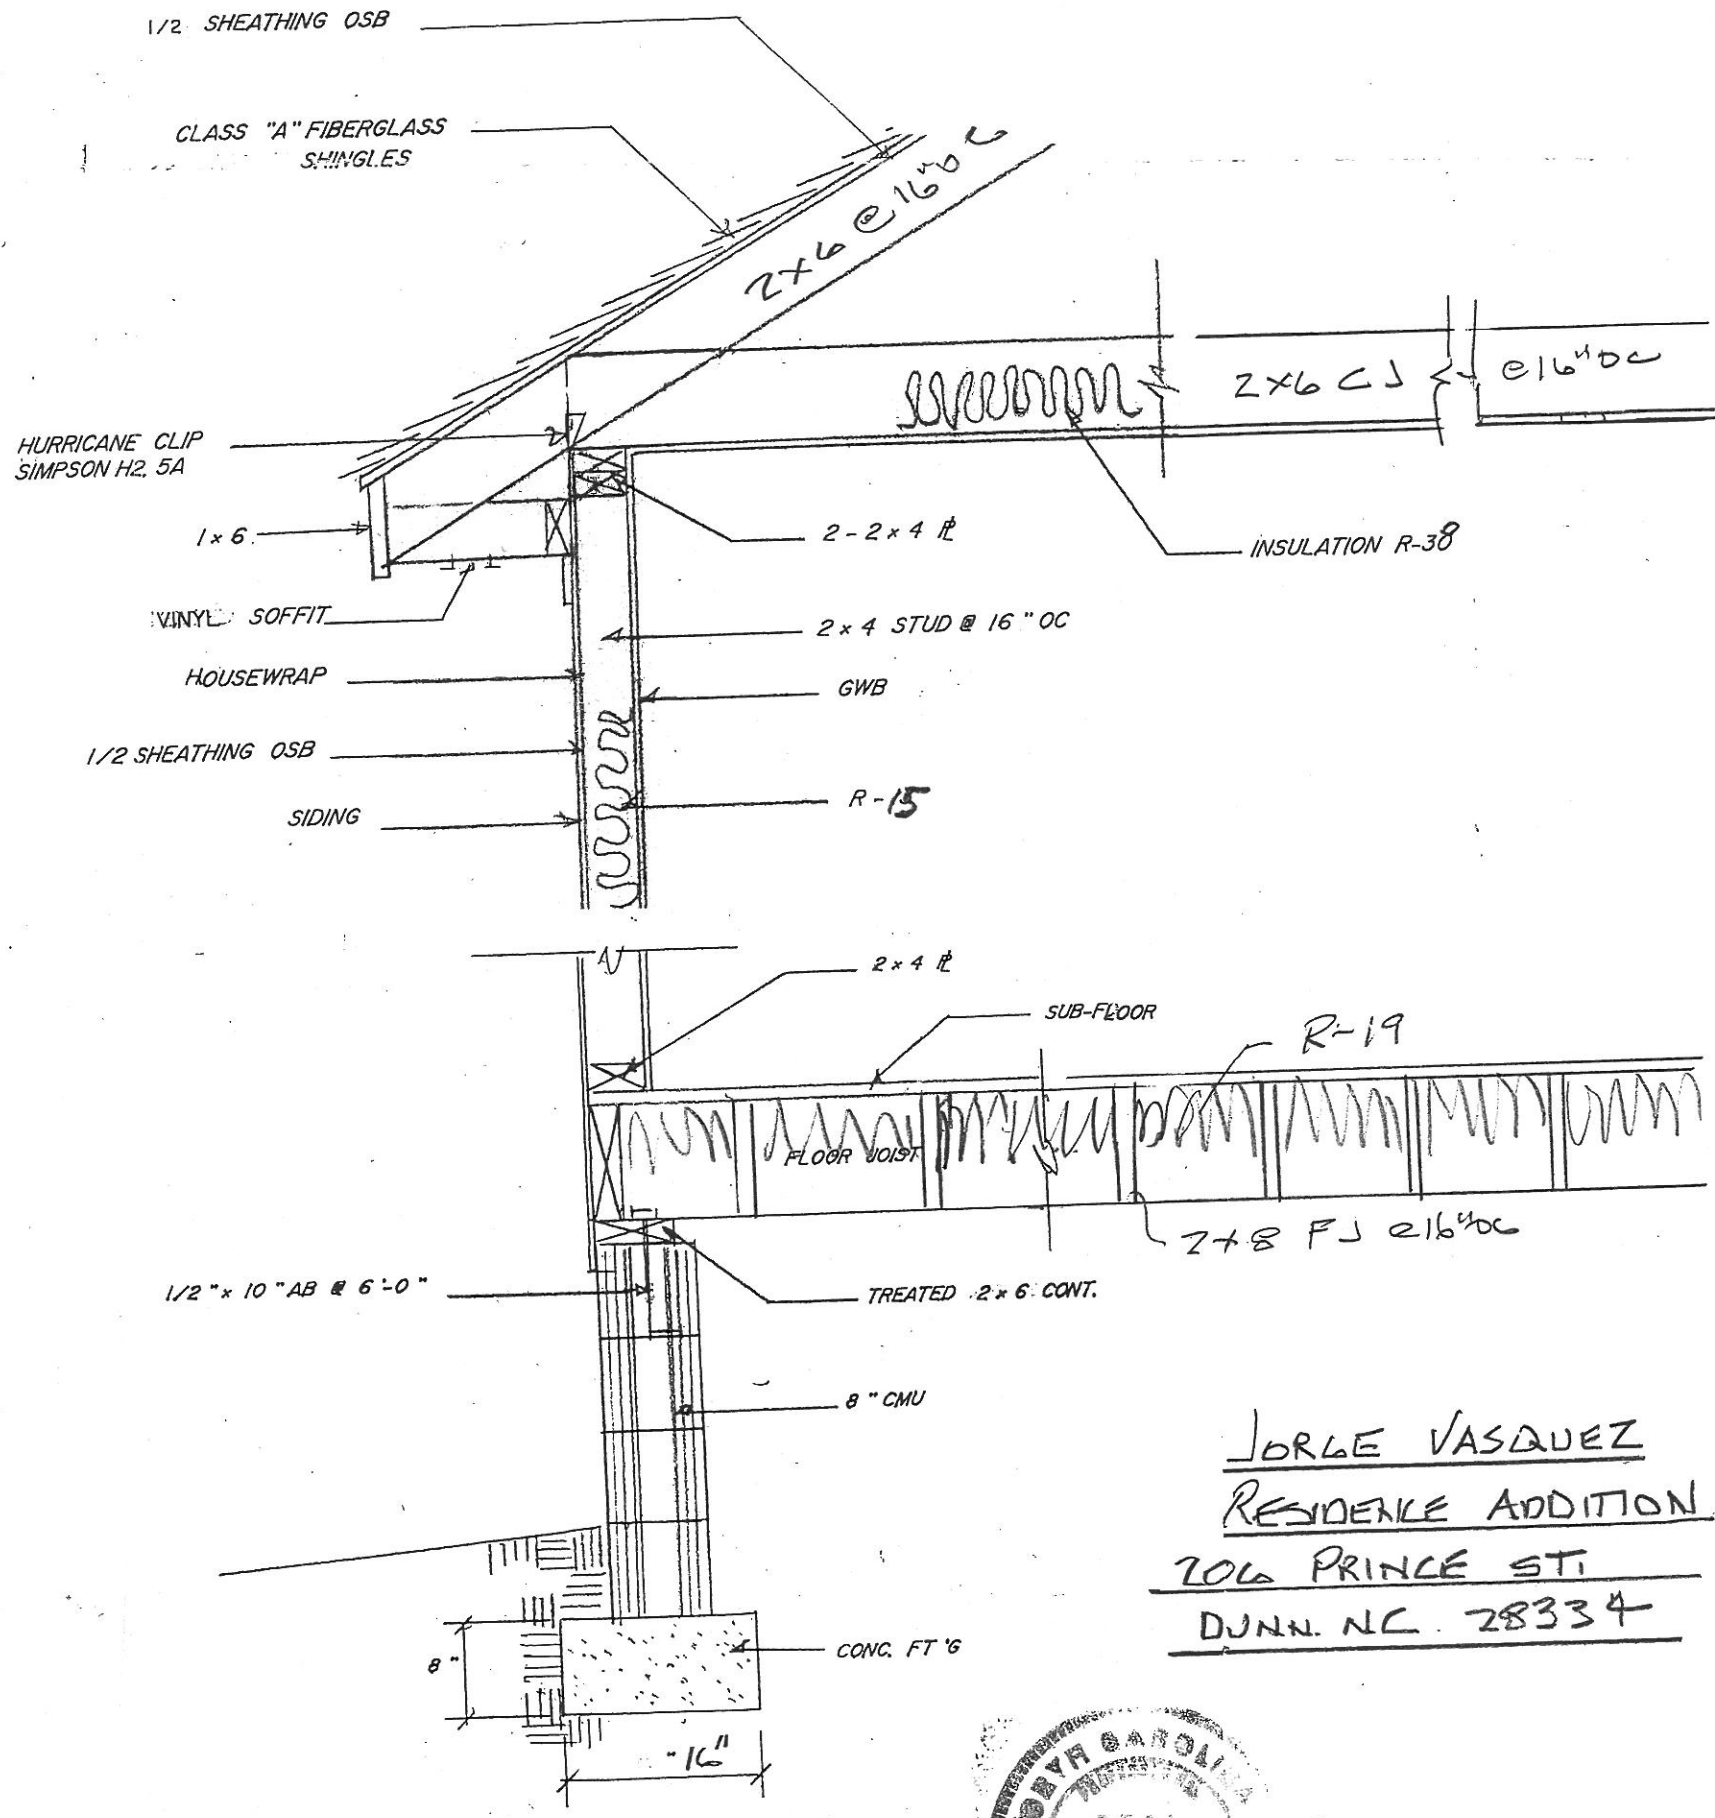 1/2 SHEATHING OSB
CLASS "A" FIBERGLASS
SHINGLES
2x6 @ 16" OC
2x6 CJ @ 16" OC
HURRICANE CLIP
SIMPSON H2. 5A
1 x 6
2 - 2 x 4 PL
INSULATION R-38
VINYL SOFFIT
2 x 4 STUD @ 16 " OC
HOUSEWRAP
GWB
1/2 SHEATHING OSB
R-15
SIDING
2 x 4 PL
SUB-FLOOR
R-19
FLOOR JOIST
2x8 FJ @16"OC
1/2 "x 10 "AB @ 6'-0"
TREATED 2 x 6 CONT.
8 "CMU
JORGE VASQUEZ
RESIDENCE ADDITION
206 PRINCE ST.
DUNN. NC. 28334
CONC. FT'G
8"
16"
NORTH CAROLINA